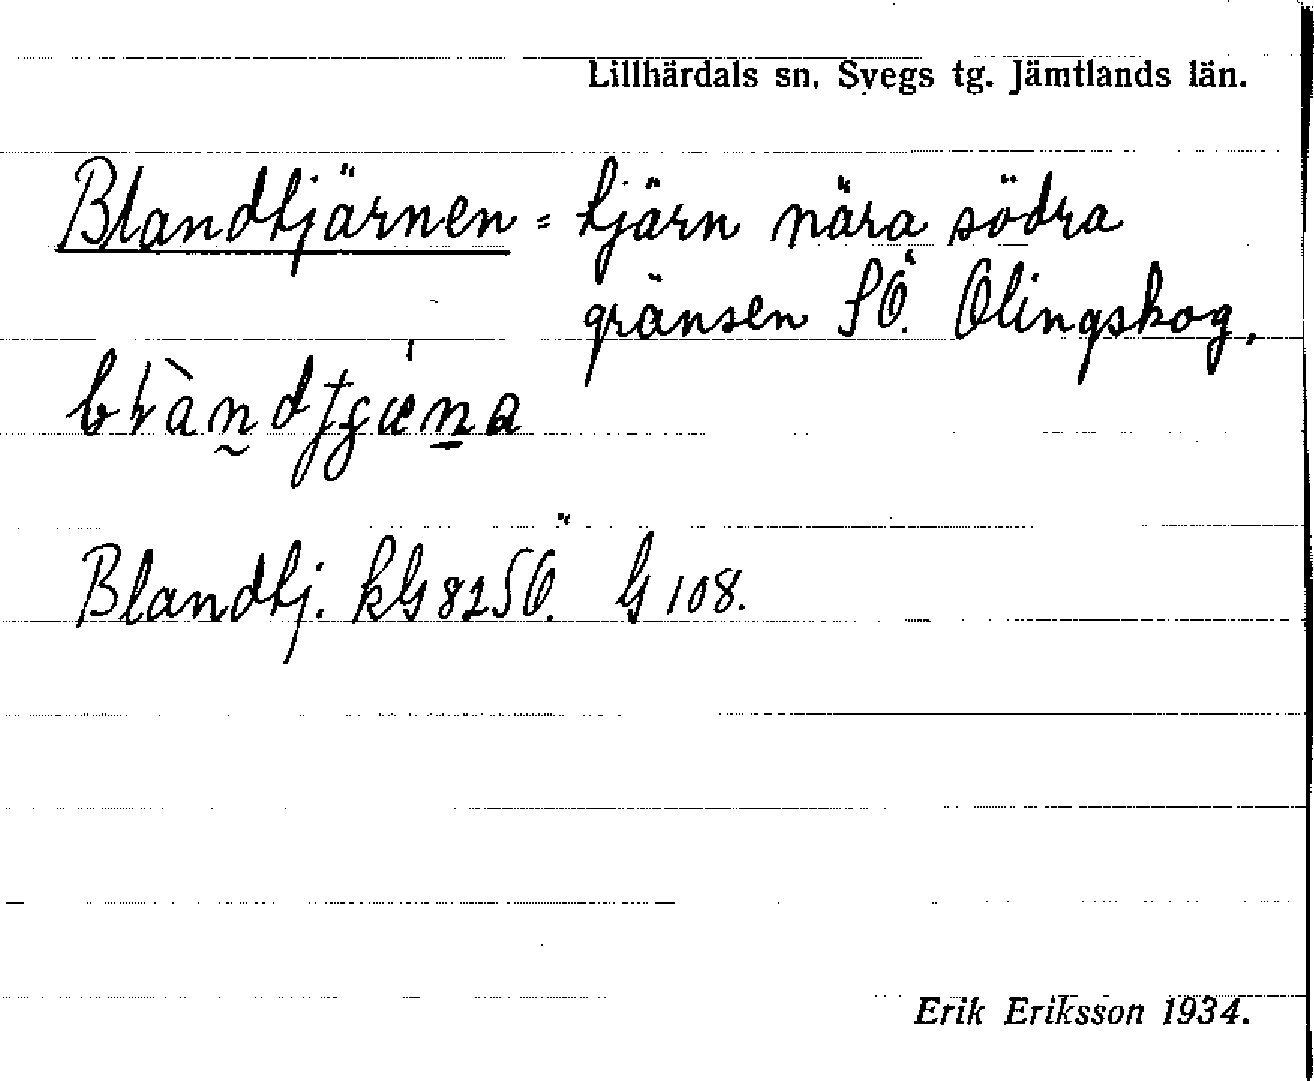 Lillhärdals sn. Svegs tg. Jämtlands län.
Blandtjärnen = tjärn nära södra
gränsen SÖ. Olingskog.
Blandtj. kG 82 SÖ. G 108.
Erik Eriksson 1934.